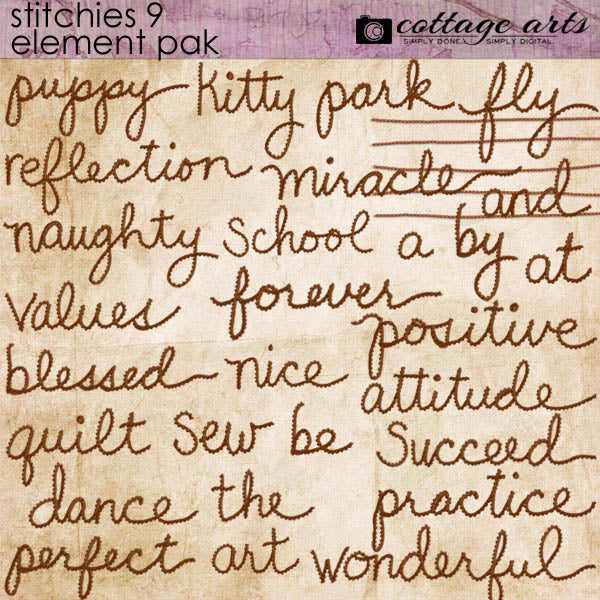 stitchies 9
element pak
cottage arts
SIMPLY DONE. SIMPLY DIGITAL.
puppy kitty park fly
reflection miracle and
naughty school a by at
values forever positive
blessed nice attitude
quilt sew be succeed
dance the practice
perfect art wonderful